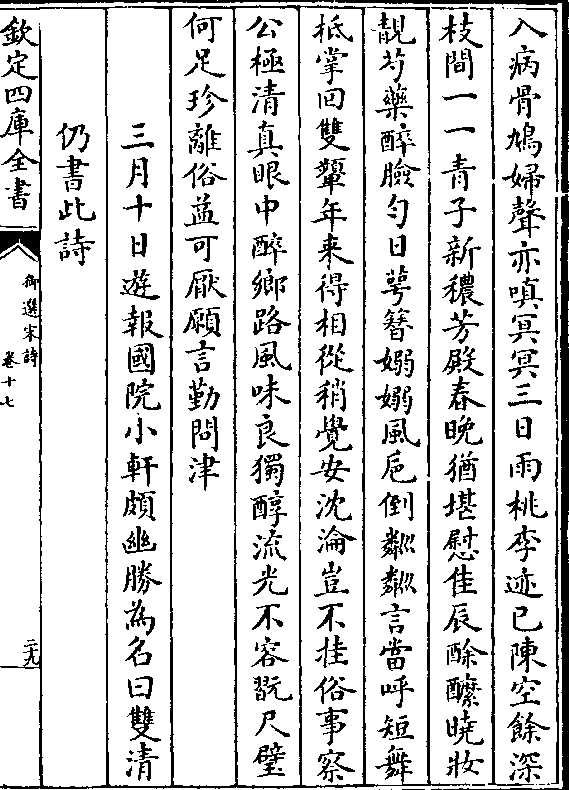 入病骨鳩婦聲亦嗔冥冥三日雨桃李迹已陳空餘深
枝間一一青子新穠芳殿春晚猶堪慰佳辰酴醿曉妝
靚芍藥醉臉勻日萼簪嫋嫋風巵倒粼粼言當呼短舞
抵掌回雙顰年来得相從稍覺安沈淪豈不挂俗事察
公極清真眼中醉鄉路風味良獨醇流光不容翫尺璧
何足珍離俗益可厭願言勤問津
三月十日遊報國院小軒頗幽勝為名曰雙清
仍書此詩
欽定四庫全書
御選宋詩
卷十七
二九